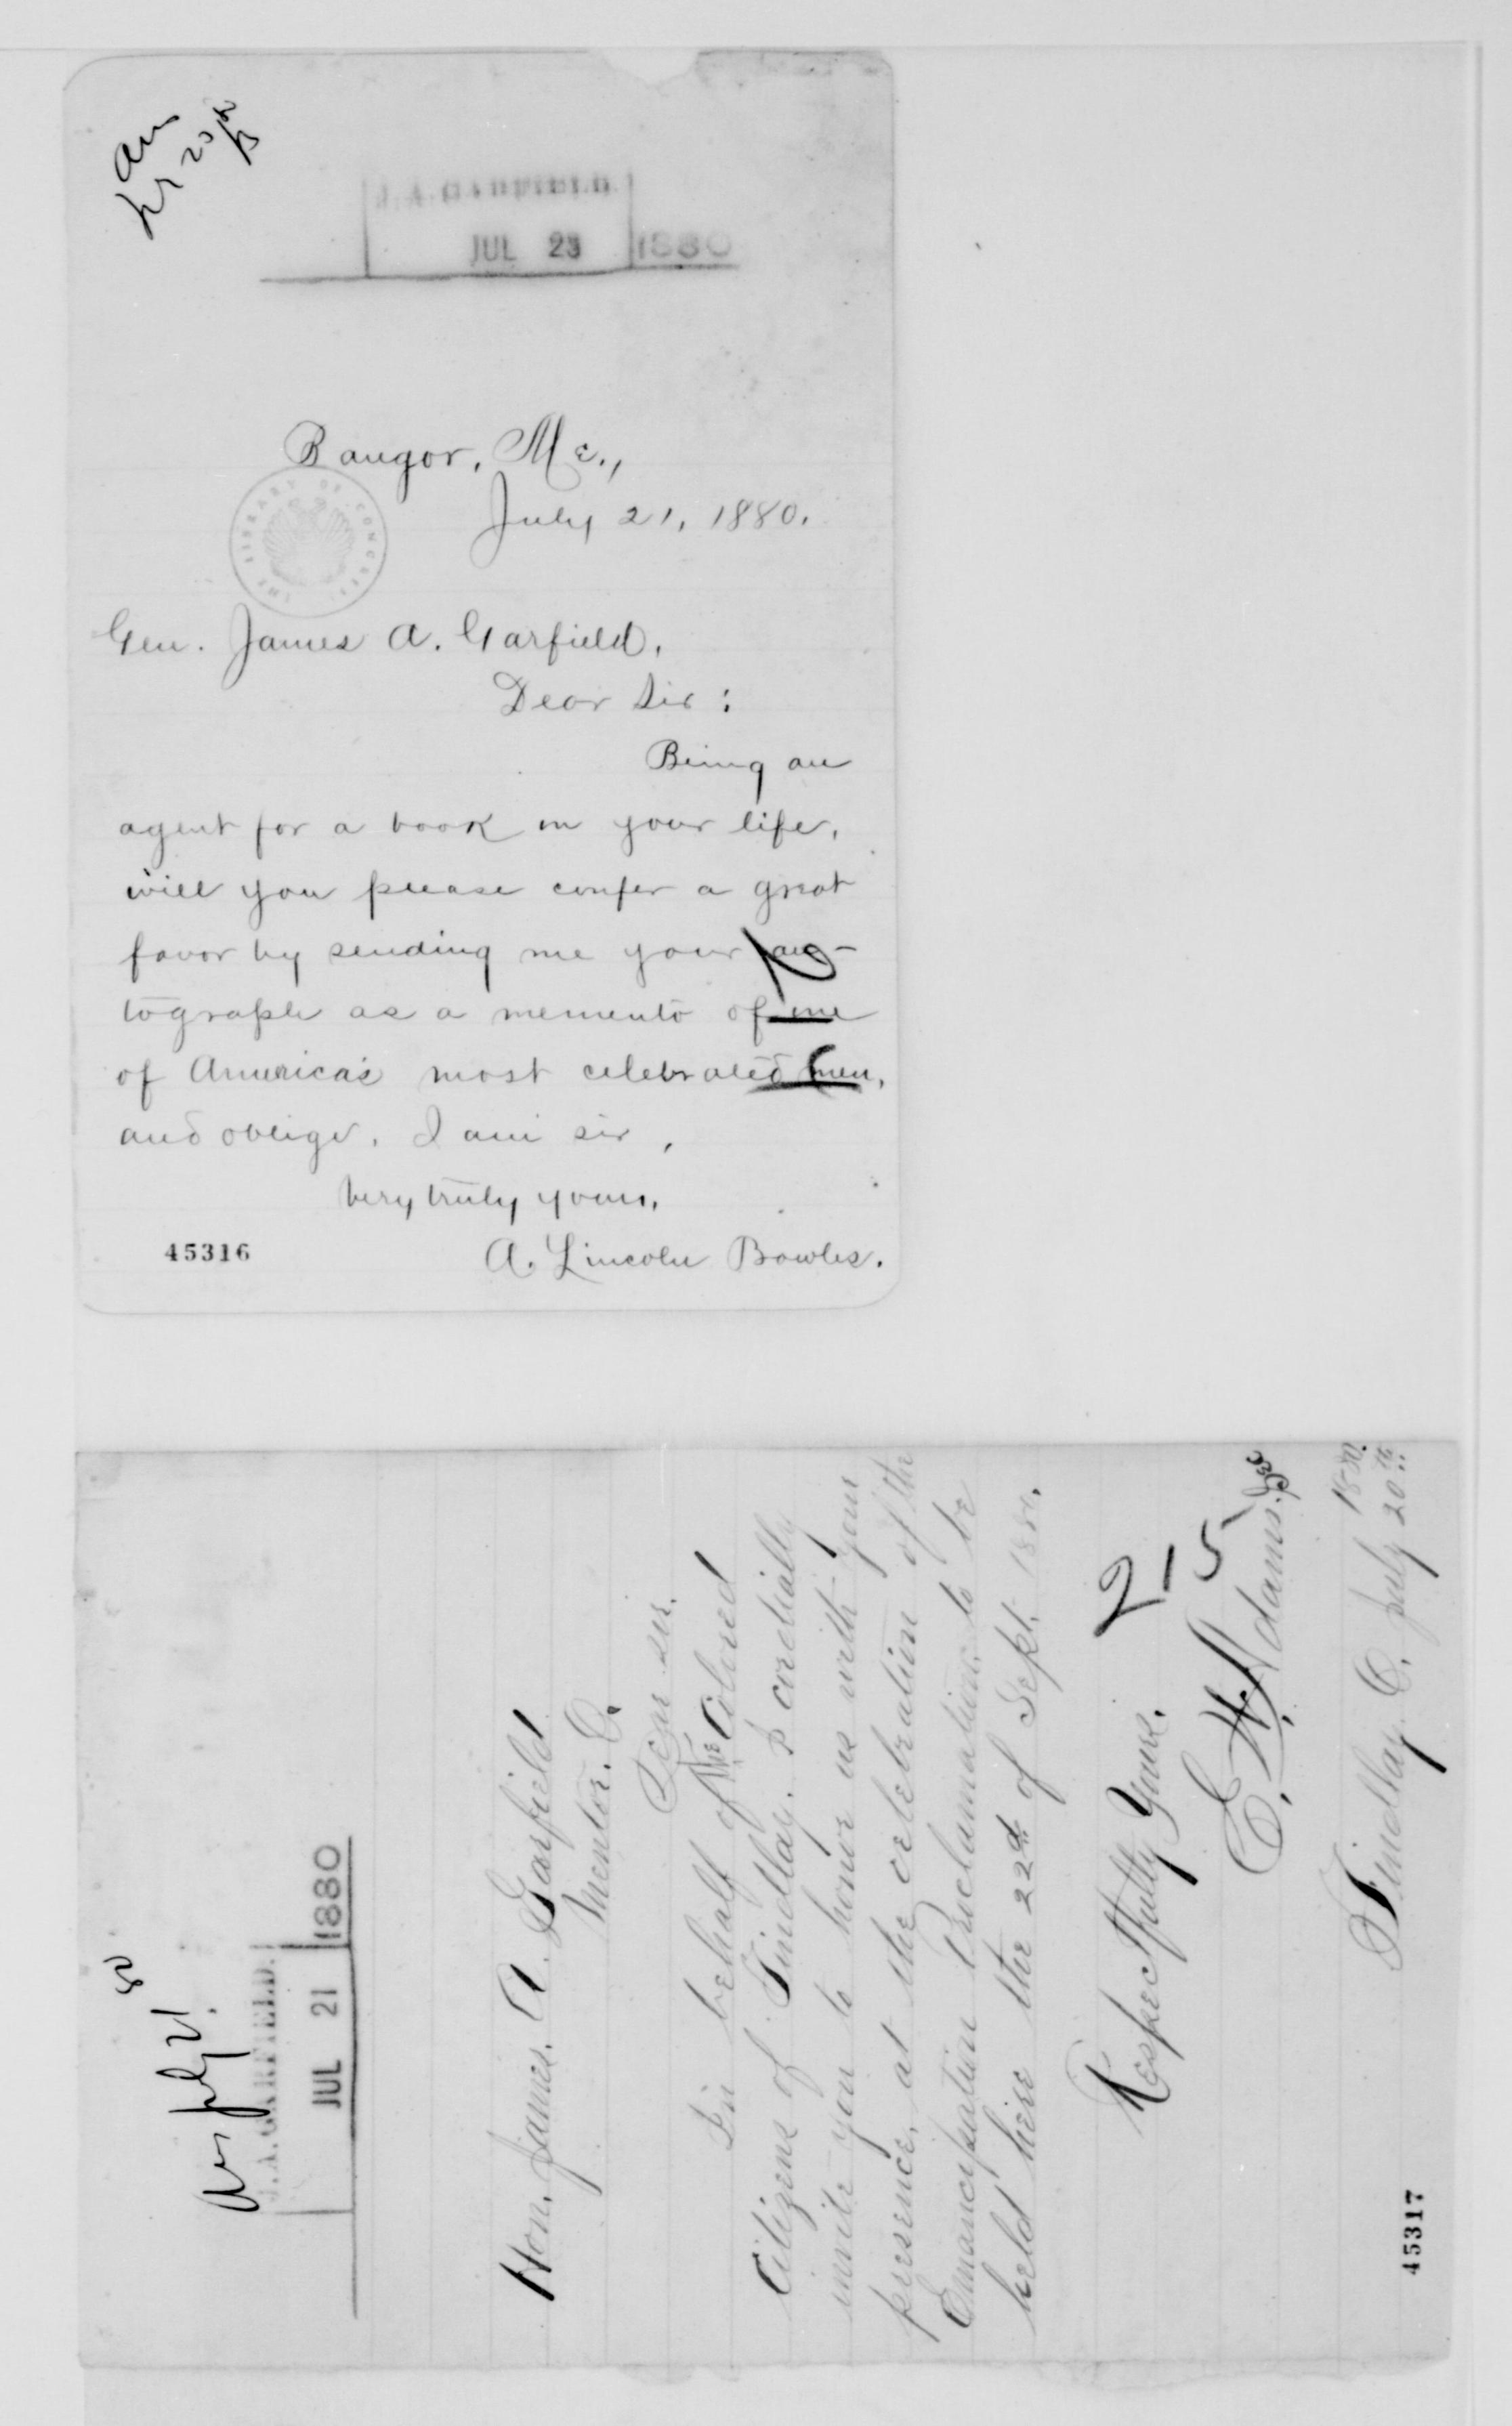 Ans
J. A. GARFIELD.
JUL 23 1880
Bangor, Me.,
July 21, 1880.
THE LIBRARY OF CONGRESS
Gen. James A. Garfield,
Dear Sir:
Being an
agent for a book on your life,
will you please confer a great
favor by sending me your au-
tograph as a memento of one
of America's most celebrated men,
and oblige. I am sir,
Very truly yours,
A. Lincoln Bowles.
45316
Ans July 21
J. A. GARFIELD.
JUL 21 1880
Hon. James. A. Garfield
Mentor. O.
Dear sir.
In behalf of the Colored
Citizens of Findlay. I cordially
invite you to honor us with your
presence, at the celebration of the
Emancipation Proclamation, to be
held here the 22d of Sept. 1880.
Respectfully Yours.
215
E. W. Adams. Sec
Findlay. O. July 20th 1880.
45317